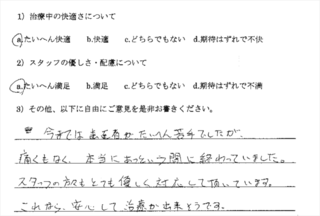 1) 治療中の快適さについて
a.たいへん快適 b.快適 c.どちらでもない d.期待はずれで不快
2) スタッフの優しさ・配慮について
a.たいへん満足 b.満足 c.どちらでもない d.期待はずれで不満
3) その他、以下に自由にご意見を是非お書きください。
今までは歯医者がたいへん苦手でしたが、
痛くもなく、本当にあっという間に終わっていました。
スタッフの方々もとても優しく対応して頂いています。
これなら、安心して治療が出来そうです。